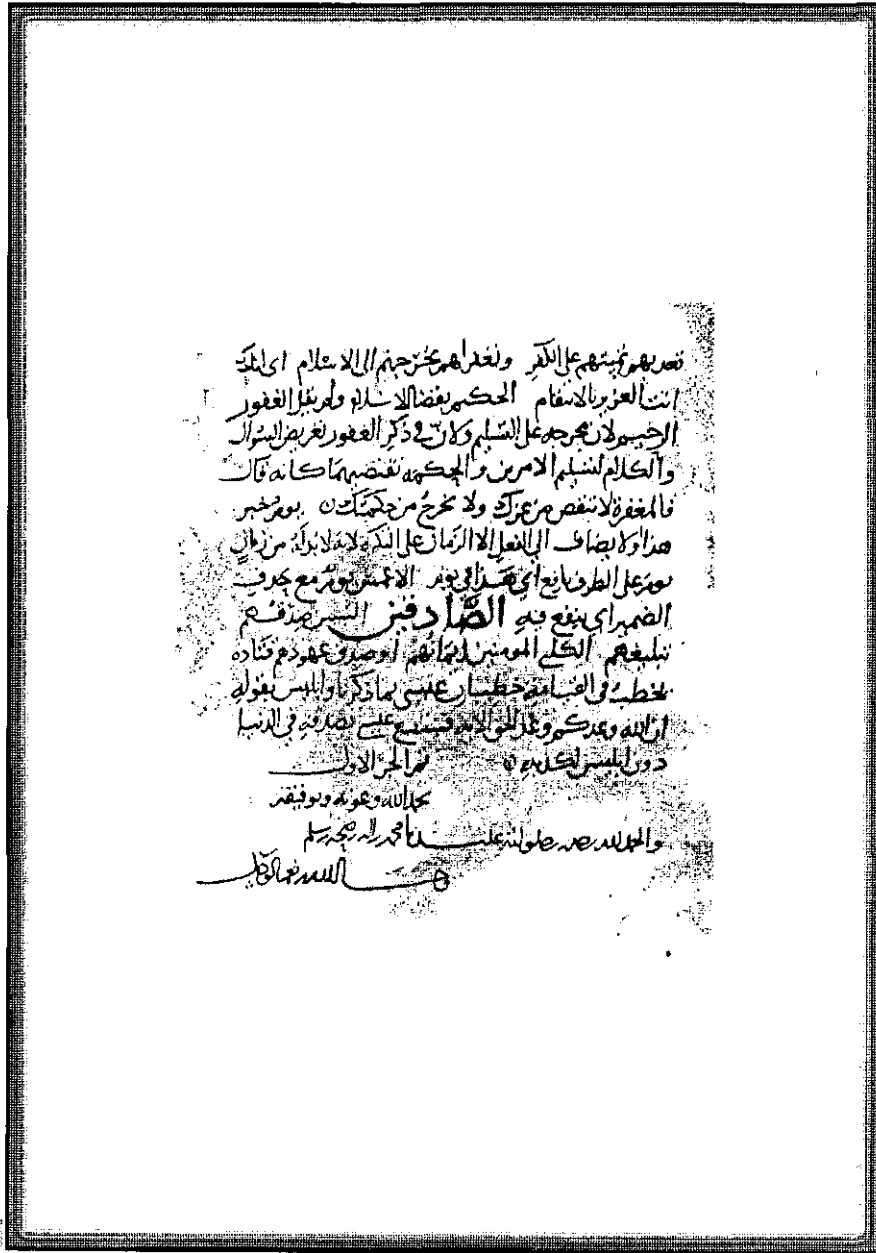 تعذبهم تميتهم على الكفر وتغفر لهم تخرجهم الى الاسلام اى انك
انت العزيز بالانتقام الحكيم بفضا الاسلام ولم يقل الغفور
الرحيم لان مخرجه على التسليم ولان في ذكر الغفور تعريض السؤال
والكلام لتسليم الامرين والحكمه تقتضيهما كانه قال
فالمغفرة لا تنقص من عزك ولا تخرج من حكمتك يوم خبر
هذا ولا يضاف الى الفعل الا الزمان على النكره لانه لا بد له من زمان
يوم على الظرف نافع اى هذا في يوم الاعمش يوم مع حذف
الضمير اى ينفع فيه الصادقين النبيين صدقهم
تبليغهم الكلبي المومنين ايمانهم او صدق عهودهم قتاده
يخطب في القيامه خطيبان عيسى بما ذكرنا وابليس بقوله
ان الله وعدكم وعد الحق الايه فينتفع عيسى بصدقه في الدنيا
دون ابليس لكذبه
تم الجز الاول
بحمد الله وعونه وتوفيقه
والحمد لله وحده وصلواته على سيدنا محمد واله وصحبه وسلم
حسبنا الله ونعم الوكيل